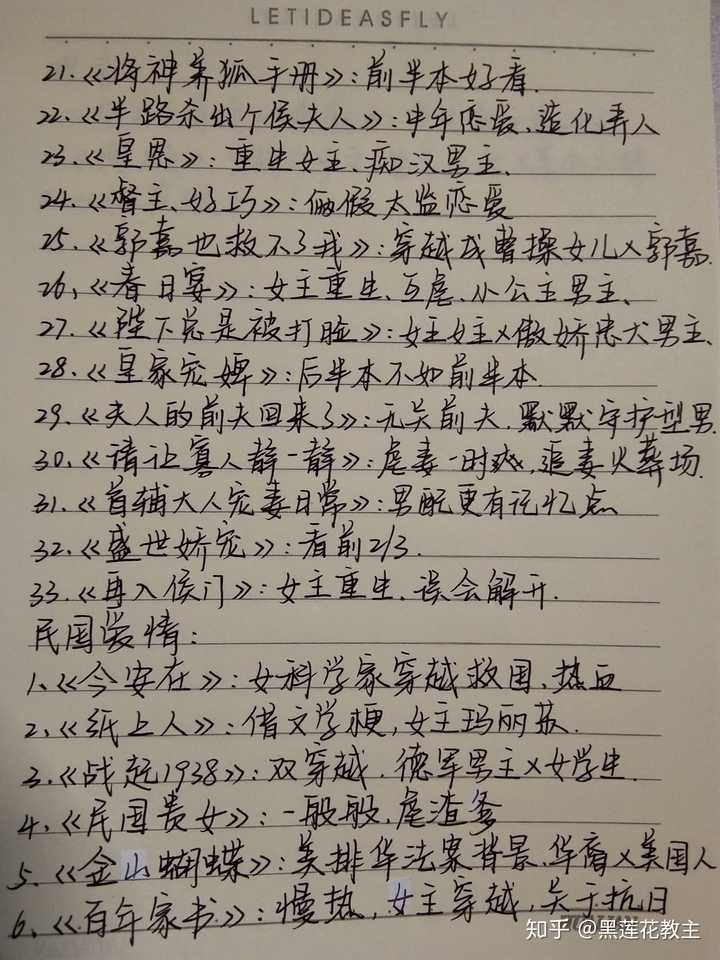 LETIDEASFLY
21.《将神养狐手册》:前半本好看.
22.《半路杀出个侯夫人》:中年恋爱、造化弄人
23.《皇恩》:重生女主、痴汉男主、
24.《督主、好巧》:俩假太监恋爱
25.《郭嘉也救不了我》:穿越成曹操女儿×郭嘉.
26、《春日宴》:女主重生、互虐、小公主男主、
27.《陛下总是被打脸》:女主女主×傲娇忠犬男主、
28.《皇家宠婢》:后半本不如前半本.
29.《夫人的前夫回来了》:无关前夫.默默守护型男.
30.《请让寡人静一静》:虐妻一时爽,追妻火葬场.
31.《首辅大人宠妻日常》:男配更有记忆点
32.《盛世娇宠》:看前2/3.
33.《再入侯门》:女主重生.误会解开.
民国爱情:
1、《今安在》:女科学家穿越救国、热血
2、《纸上人》:借文学梗,女主玛丽苏.
3.《战起1938》:双穿越.德军男主×女学生.
4、《民国贵女》:一般般.虐渣爹
5、《金山蝴蝶》:美排华法案背景.华裔×美国人
6、《百年家书》:慢热,女主穿越,关于抗日
知乎 @黑莲花教主